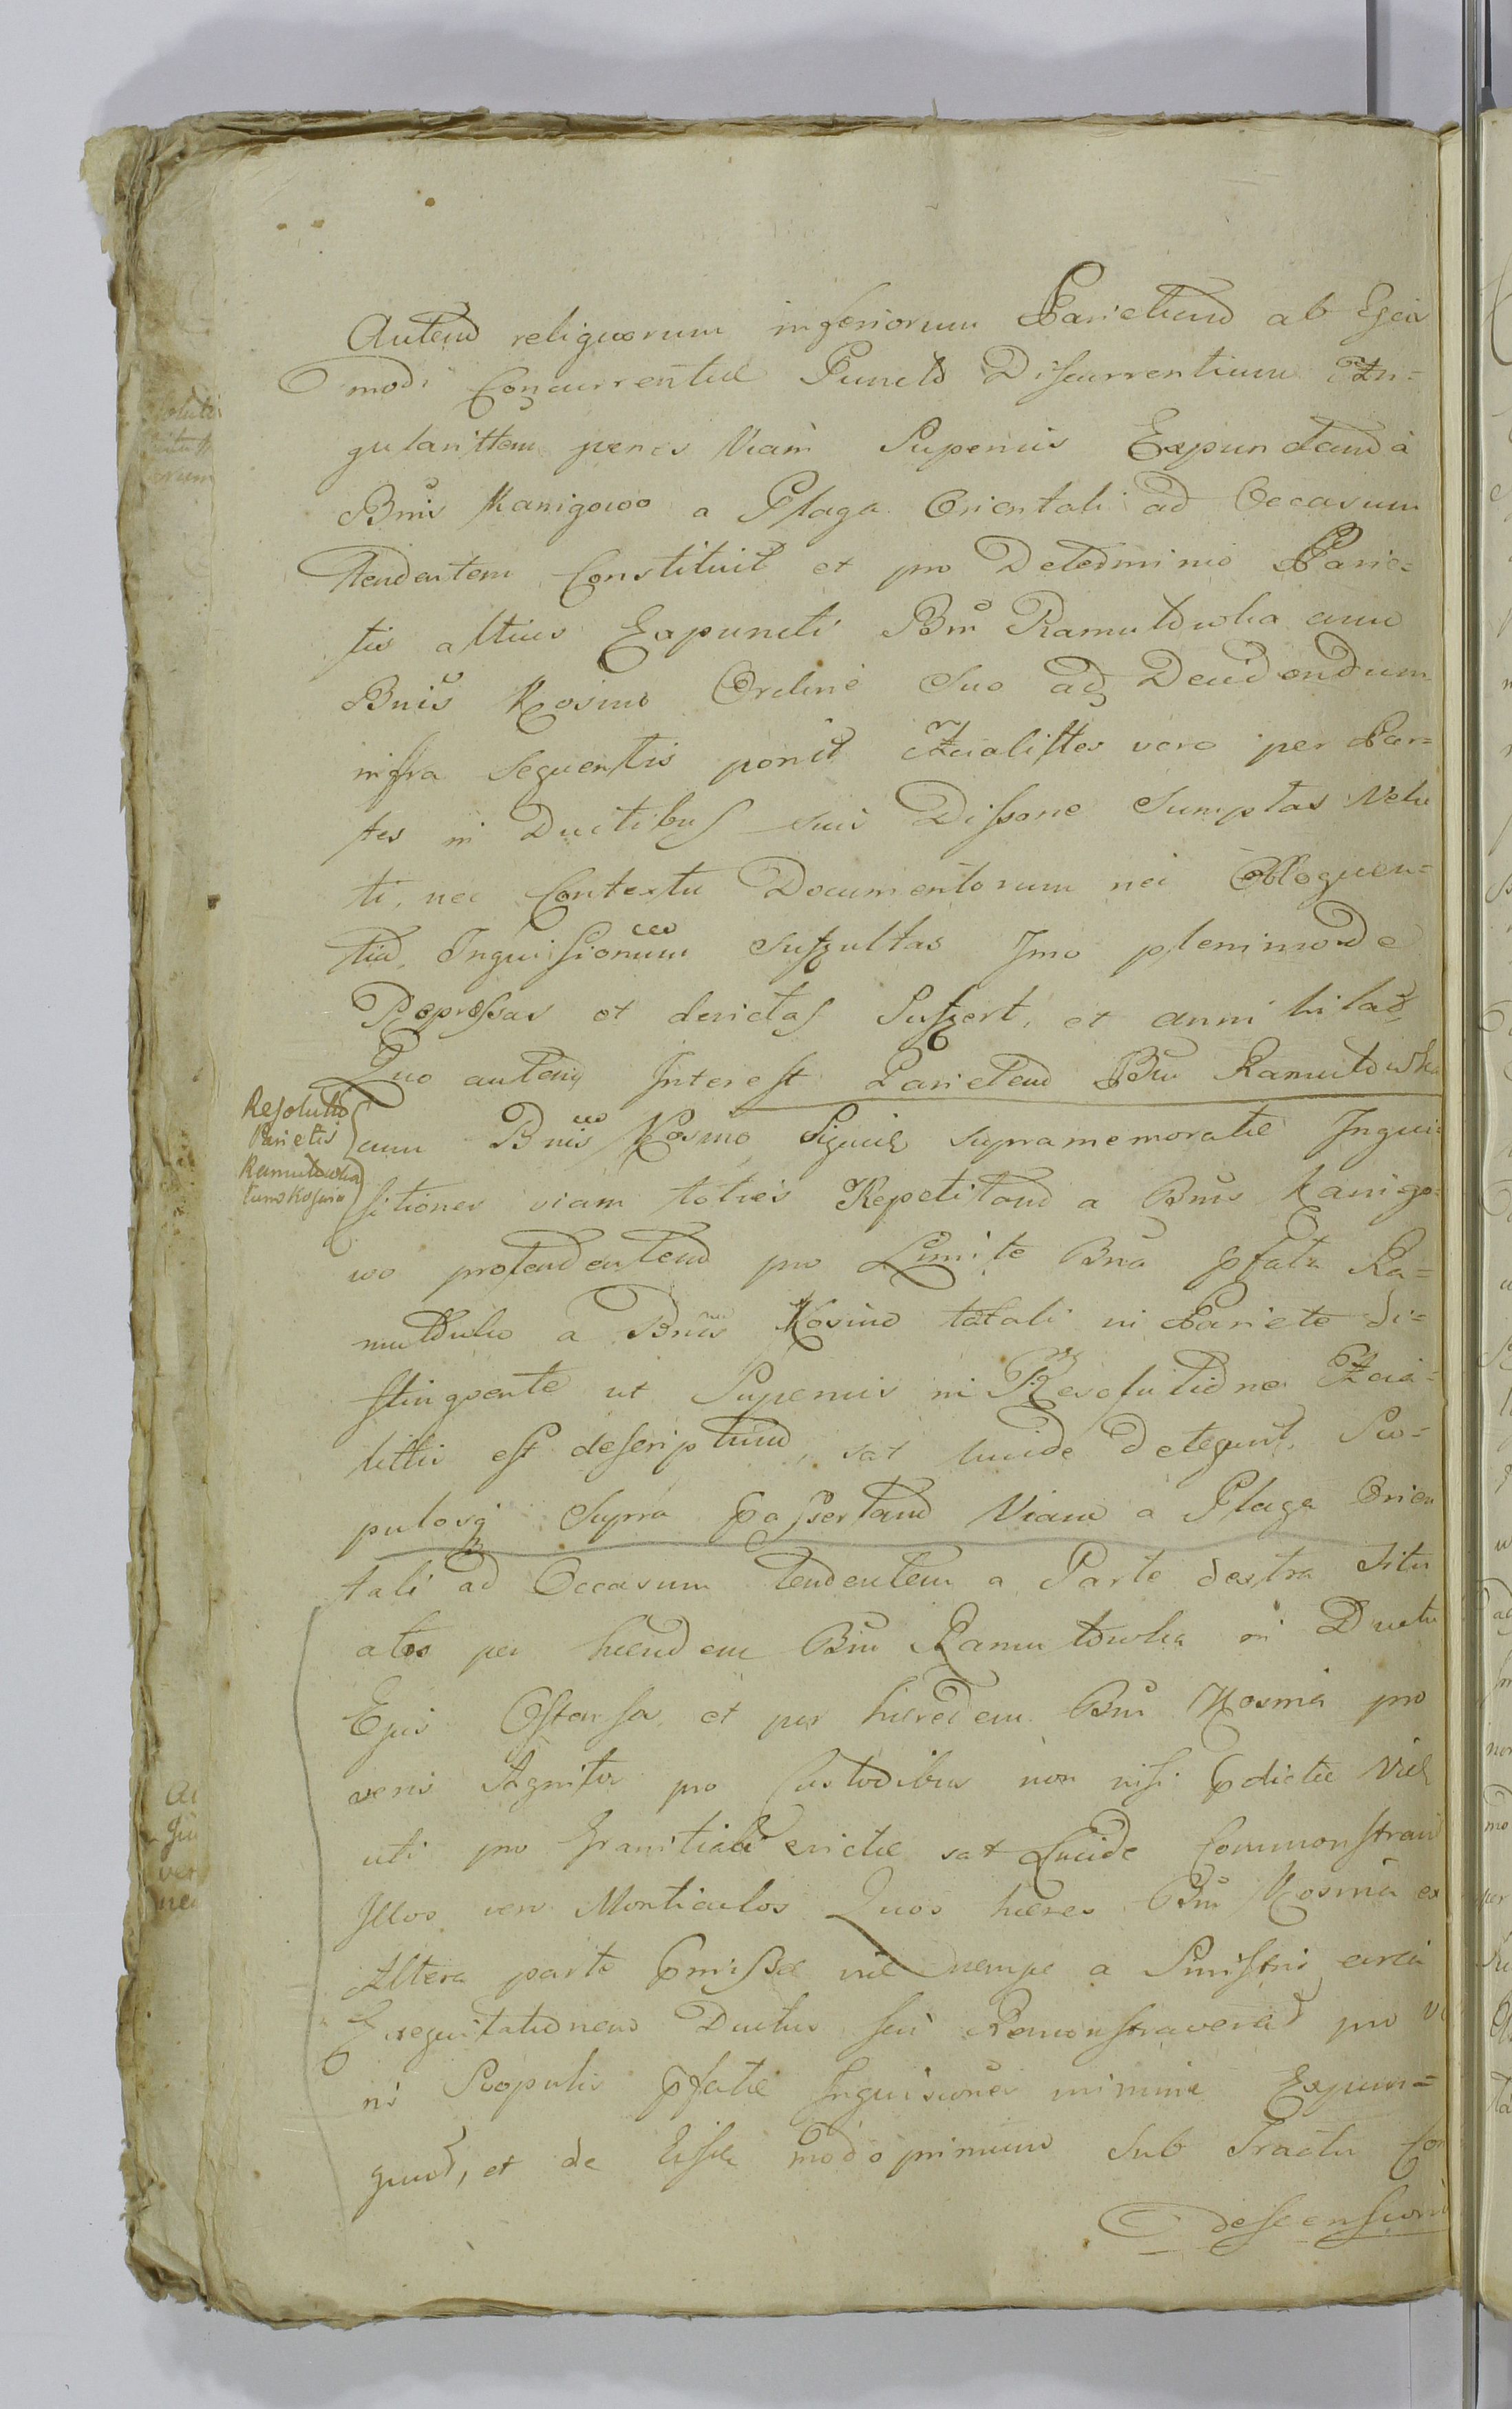 Autem reliquorum inferiorum Parietum ab Ejus
modi Concurrentiae Puncto Discurrentium An=
gularittem penes Viam Superius Expunctam à
Bnis Kanigowo a Plaga Orientali ad Occasum
tendentem Constituit et pro Determinio Parie=
tis altius Expuncti Bnr Ramutowka cum
Bnis Kosmo Ordine Suo ad Decidendum
infra sequentis ponit vero per Par=
tes in Ductibus suis Dissone Sumptas Velu
ti, nec Contextu Documentorum nec Eloquen=
tia Inquisitionum Suffultas Imo plenimode
Repressas et devictas et anni hilat,
Quo autem Interest Parietem Bnr Ramutowka
cum Bnis Kosmo Siquid supramemoratae Inqui=
sitiones viam toties Repetitam a Bnis Kanigo=
wo protendentem pro Limite Bna pfata Ra=
mutowka a Bnis Kosmo totali in Pariete di=
stingvente ut Superius in Resolutione
littis est descriptum, sat lucide detegunt, Sco=
pulosq Supra passertam Viam a Plaga Orien
tali ad Occasum tendentem a Parte dextra Situ
atos per haeredem Bnr Ramutowka in Ductu
Ejus Ostensos et per haeredem Bnr Kosmo pro
veris Agnitos pro Custodibus non nisi pdictae viae
uti pro Granitiali erictae sat Lucide Commonstrant
Illos vero Monticulos Quos haeres Bnr Kosmo ex
Altera parte pmissae viae nempe a Sinistri circa
Exequitationem Ductus sui Remonstraverat pro ve
ris Scopulis pfatae Inquisitiones minime Expun=
gunt, et de Eisdem modo primum Sub Tractu Con
descensioni
Resolutio
Parietis
Ramutowka
cum Kosmo